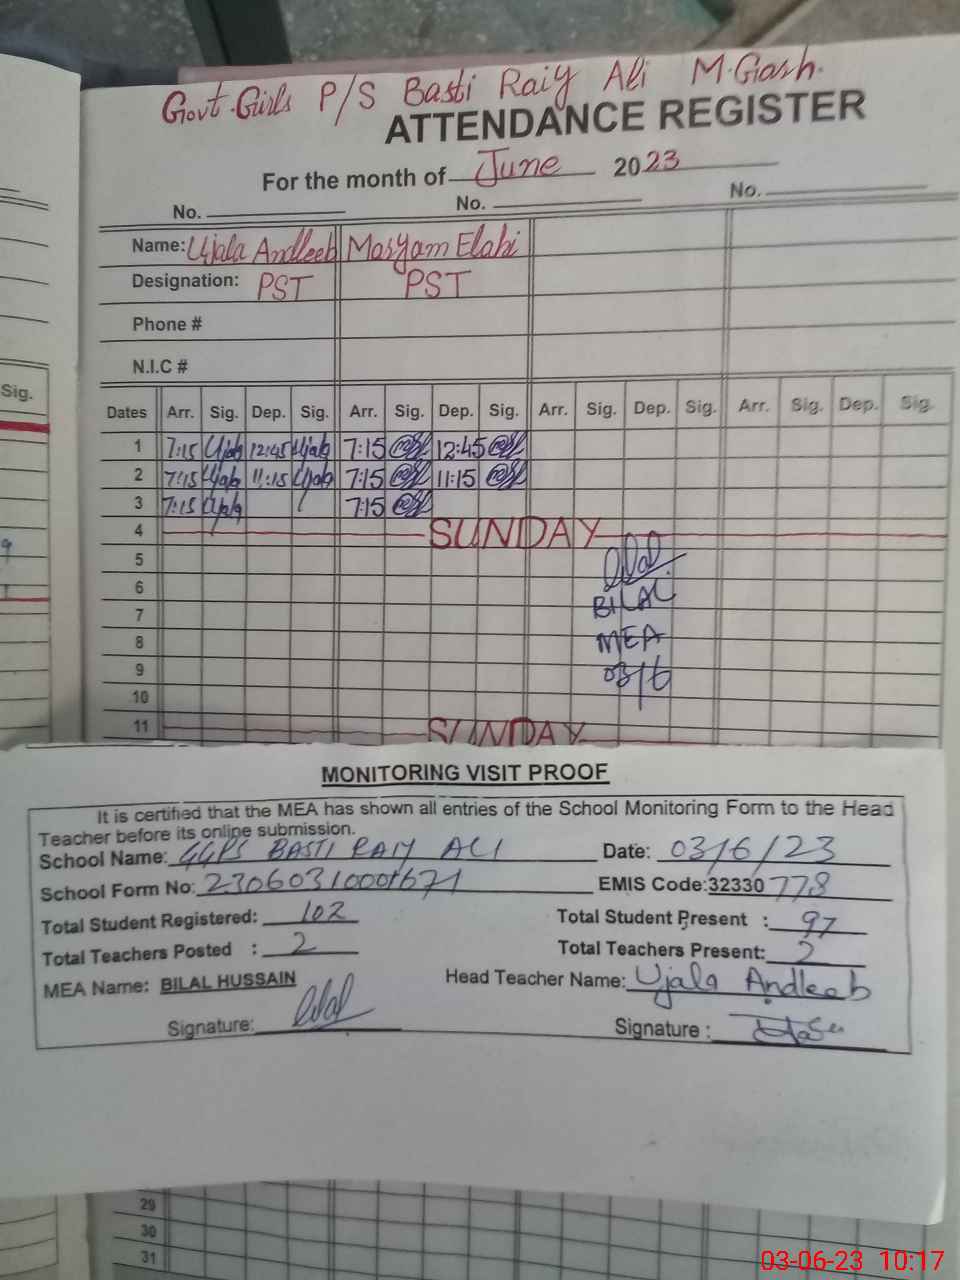 Govt. Girls P/S Basti Raiy Ali M. Garh.
ATTENDANCE REGISTER
For the month of June 2023
No. No. No.
Name: Ujala Andleeb Maryam Elahi
Designation: PST PST
Phone #
N.I.C #
Sig.
Dates Arr. Sig. Dep. Sig. Arr. Sig. Dep. Sig. Arr. Sig. Dep. Sig. Arr. Sig. Dep. Sig.
1 7:15 Ujala 12:45 Ujala 7:15 12:45
2 7:15 Ujala 11:15 Ujala 7:15 11:15
3 7:15 Ujala 7:15
4 SUNDAY
5
6 BILAL
7
8 MEA
9 03/6
10
11 SUNDAY
MONITORING VISIT PROOF
It is certified that the MEA has shown all entries of the School Monitoring Form to the Head
Teacher before its online submission.
School Name: GGPS BASTI RAIY ALI Date: 03/6/23
School Form No: EMIS Code: 32330778
Total Student Registered: 102 Total Student Present : 97
Total Teachers Posted : 2 Total Teachers Present: 2
MEA Name: BILAL HUSSAIN Head Teacher Name: Ujala Andleeb
Signature: Signature :
29
30
31
03-06-23 10:17